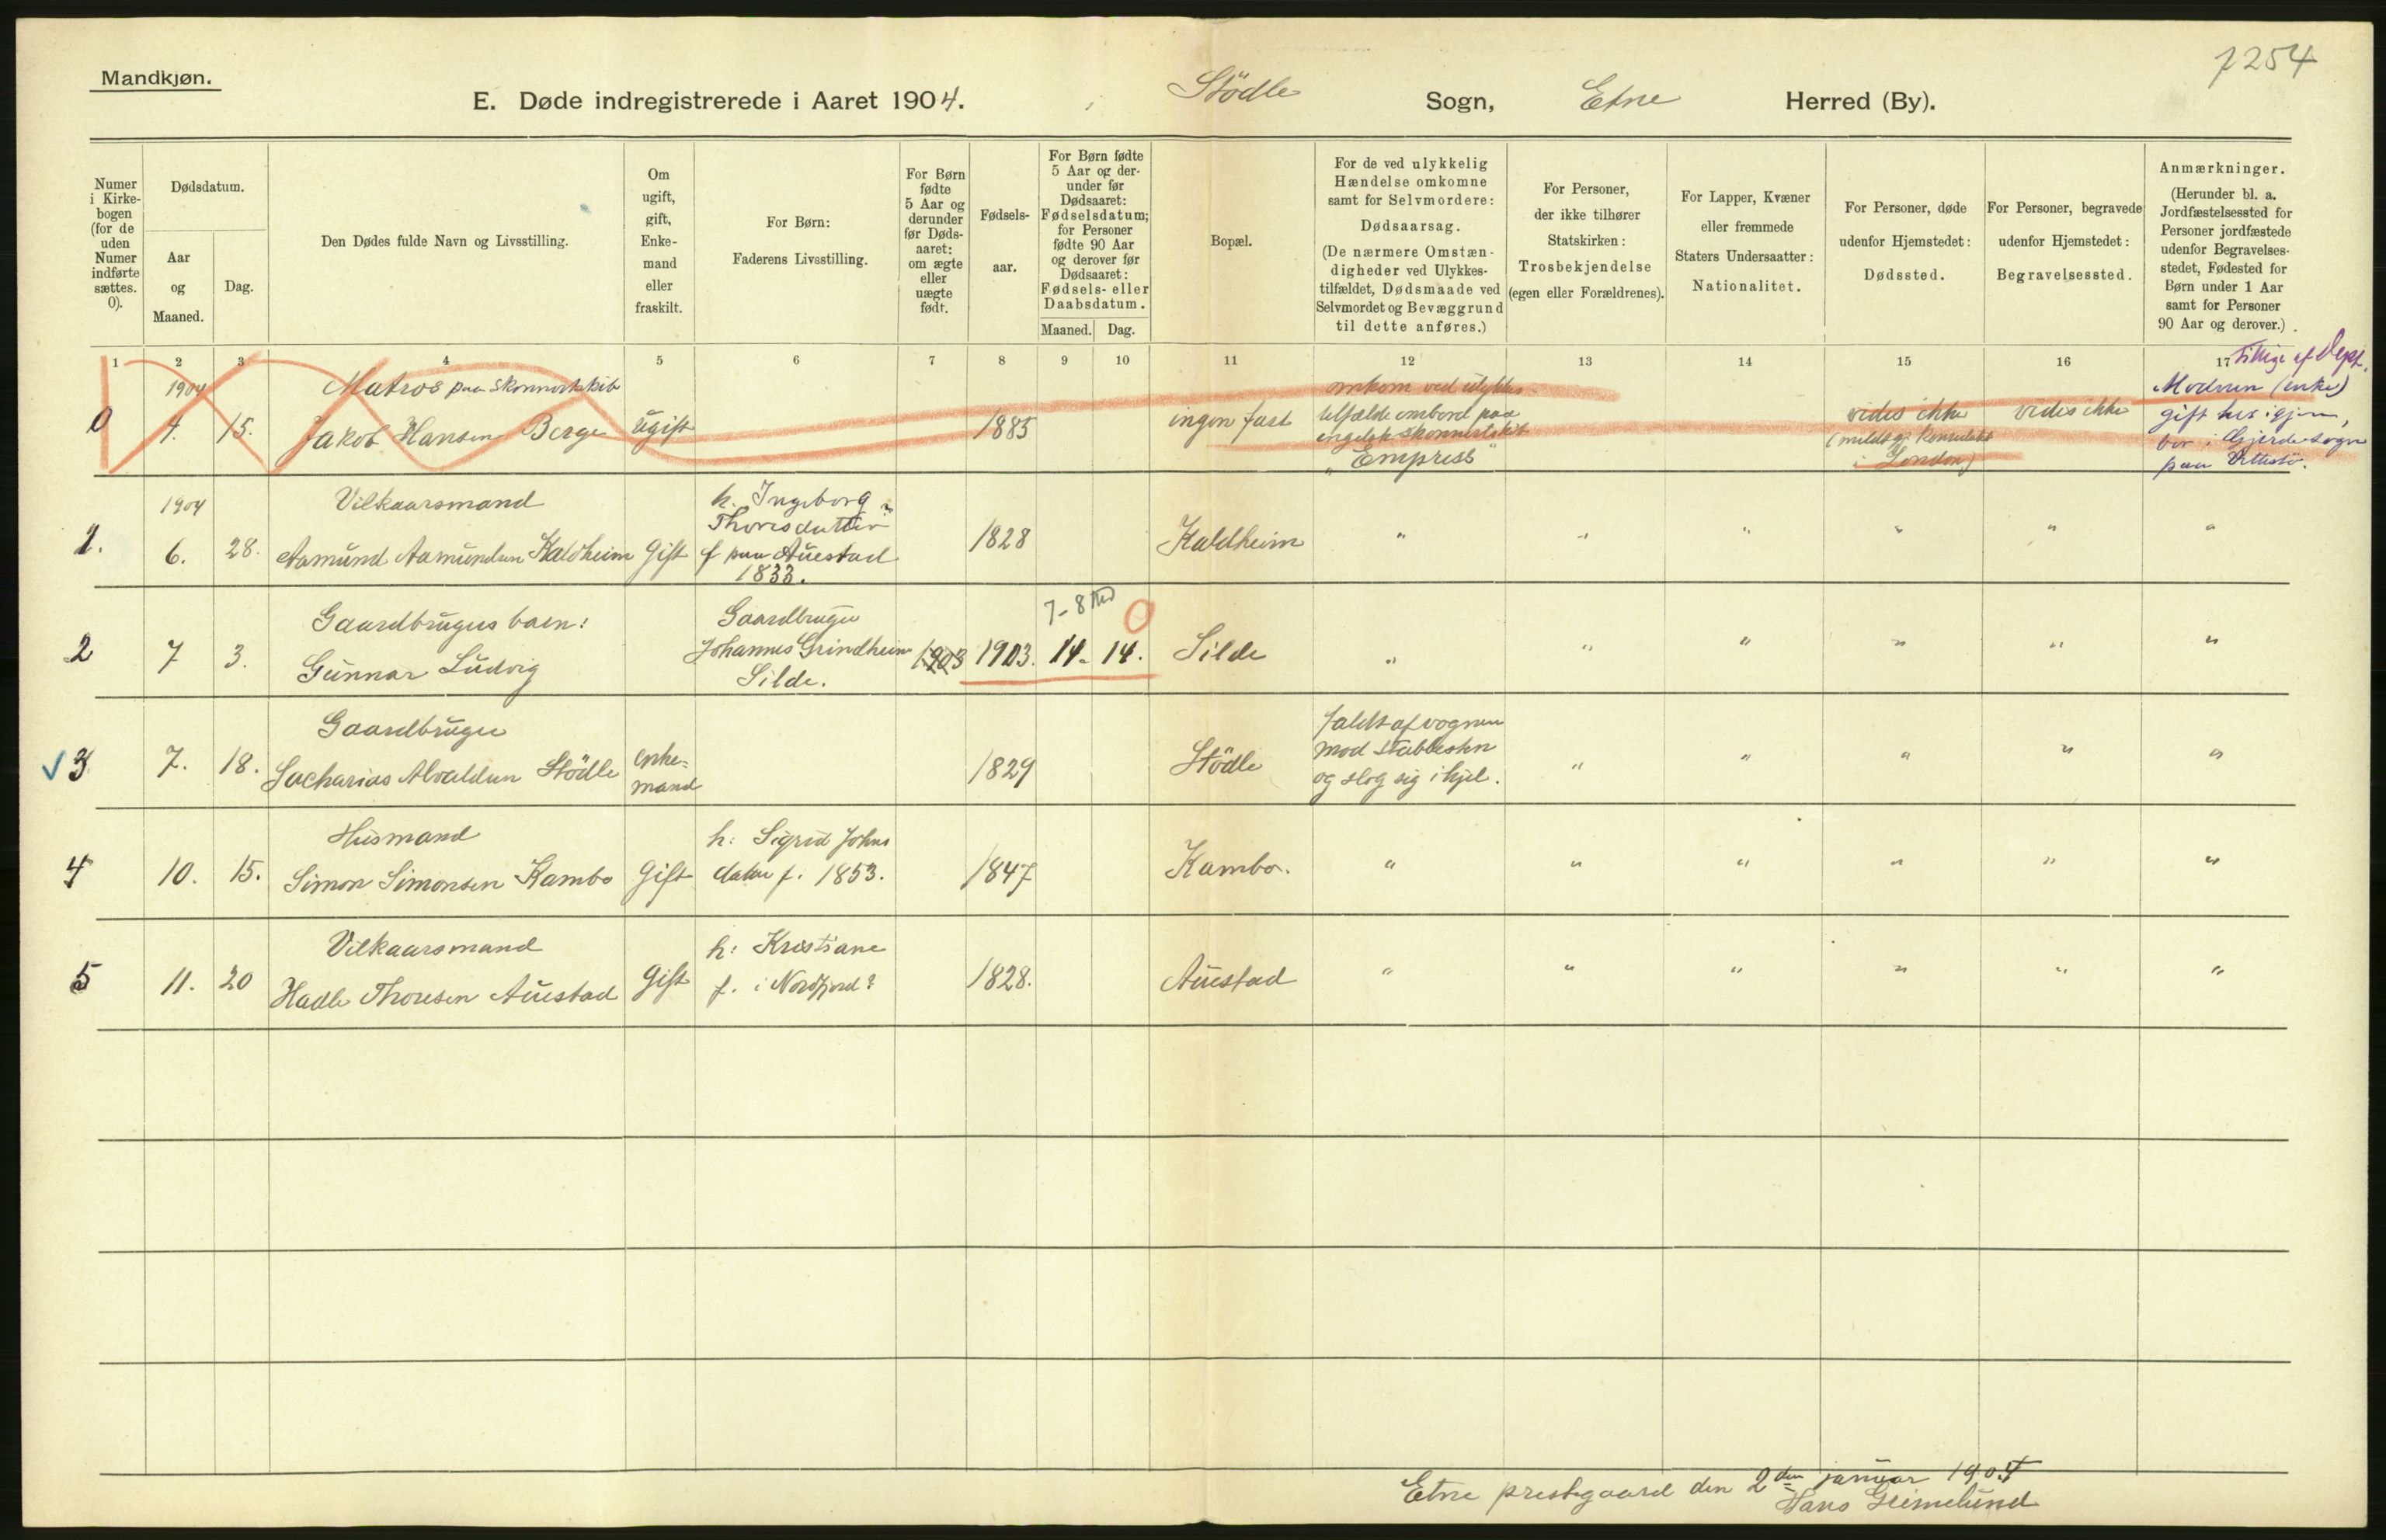 7254
Mandkjøn.
E. Døde indregistrerede i Aaret 1904. Stödle Sogn, Etne Herred (By).
Numer i Kirkebogen (for de uden Numer indførte sættes. 0).
Dødsdatum.
Aar og Maaned.
Dag.
Den Dødes fulde Navn og Livsstilling.
Om ugift, gift, Enkemand eller fraskilt.
For Børn:
Faderens Livsstilling.
For Børn fødte 5 Aar og derunder før Dødsaaret: om ægte eller uægte født.
Fødselsaar.
For Børn fødte 5 Aar og derunder før Dødsaaret: Fødselsdatum; for Personer fødte 90 Aar og derover før Dødsaaret: Fødsels- eller Daabsdatum.
Maaned. Dag.
Bopæl.
For de ved ulykkelig Hændelse omkomne samt for Selvmordere:
Dødsaarsag.
(De nærmere Omstændigheder ved Ulykkestilfældet, Dødsmaade ved Selvmordet og Bevæggrund til dette anføres.)
For Personer, der ikke tilhører Statskirken:
Trosbekjendelse
(egen eller Forældrenes).
For Lapper, Kvæner eller fremmede Staters Undersaatter:
Nationalitet.
For Personer, døde udenfor Hjemstedet:
Dødssted.
For Personer, begravede udenfor Hjemstedet:
Begravelsessted.
Anmærkninger.
(Herunder bl. a. Jordfæstelsessted for Personer jordfæstede udenfor Begravelsesstedet, Fødested for Børn under 1 Aar samt for Personer 90 Aar og derover.)
1 2 3 4 5 6 7 8 9 10 11 12 13 14 15 16 17
0 1904 4. 15. Matros paa skonnertskib
Jakob Hansen Berge ugift 1885 ingen fast
omkom ved ulykkes-
tilfælde ombord paa
engelsk skonnertskib
„Empress“
vides ikke
(meldt gj. konsulatet
i London)
vides ikke
Moderen (enke)
gift her igjen,
bor i Gjerde sogn
paa
1. 1904 6. 28. Vilkaarsmand
Aamund Aamundsen Kaldheim Gift
h. Ingeborg
Thoresdatter
f paa Auestad
1833.
1828 Kaldheim " " " " " "
2 7 3. Gaardbrugers barn:
Gunnar Ludvig
Gaardbruger
Johannes Grindheim
Silde.
1903 1903. 14. 14. Silde " " " " " "
7-8 0
3 7. 18. Gaardbruger
Sacharias Alvaldsen Stödle enke=
mand
1829 Stödle
faldt af vognen
mod stabbesten
og slog sig ihjel.
" " " " "
4 10. 15. Husmand
Simon Simonsen Kambo Gift
h: Sigrid Johns
datter f. 1853.
1847 Kambo. " " " " " "
5 11. 20 Vilkaarsmand
Hadle Thoresen Auestad Gift
h: Kristiane
f. i Nordfjord?
1828. Auestad " " " " " "
Etne prestegaard den 2den januar 1904
Hans Grimelund